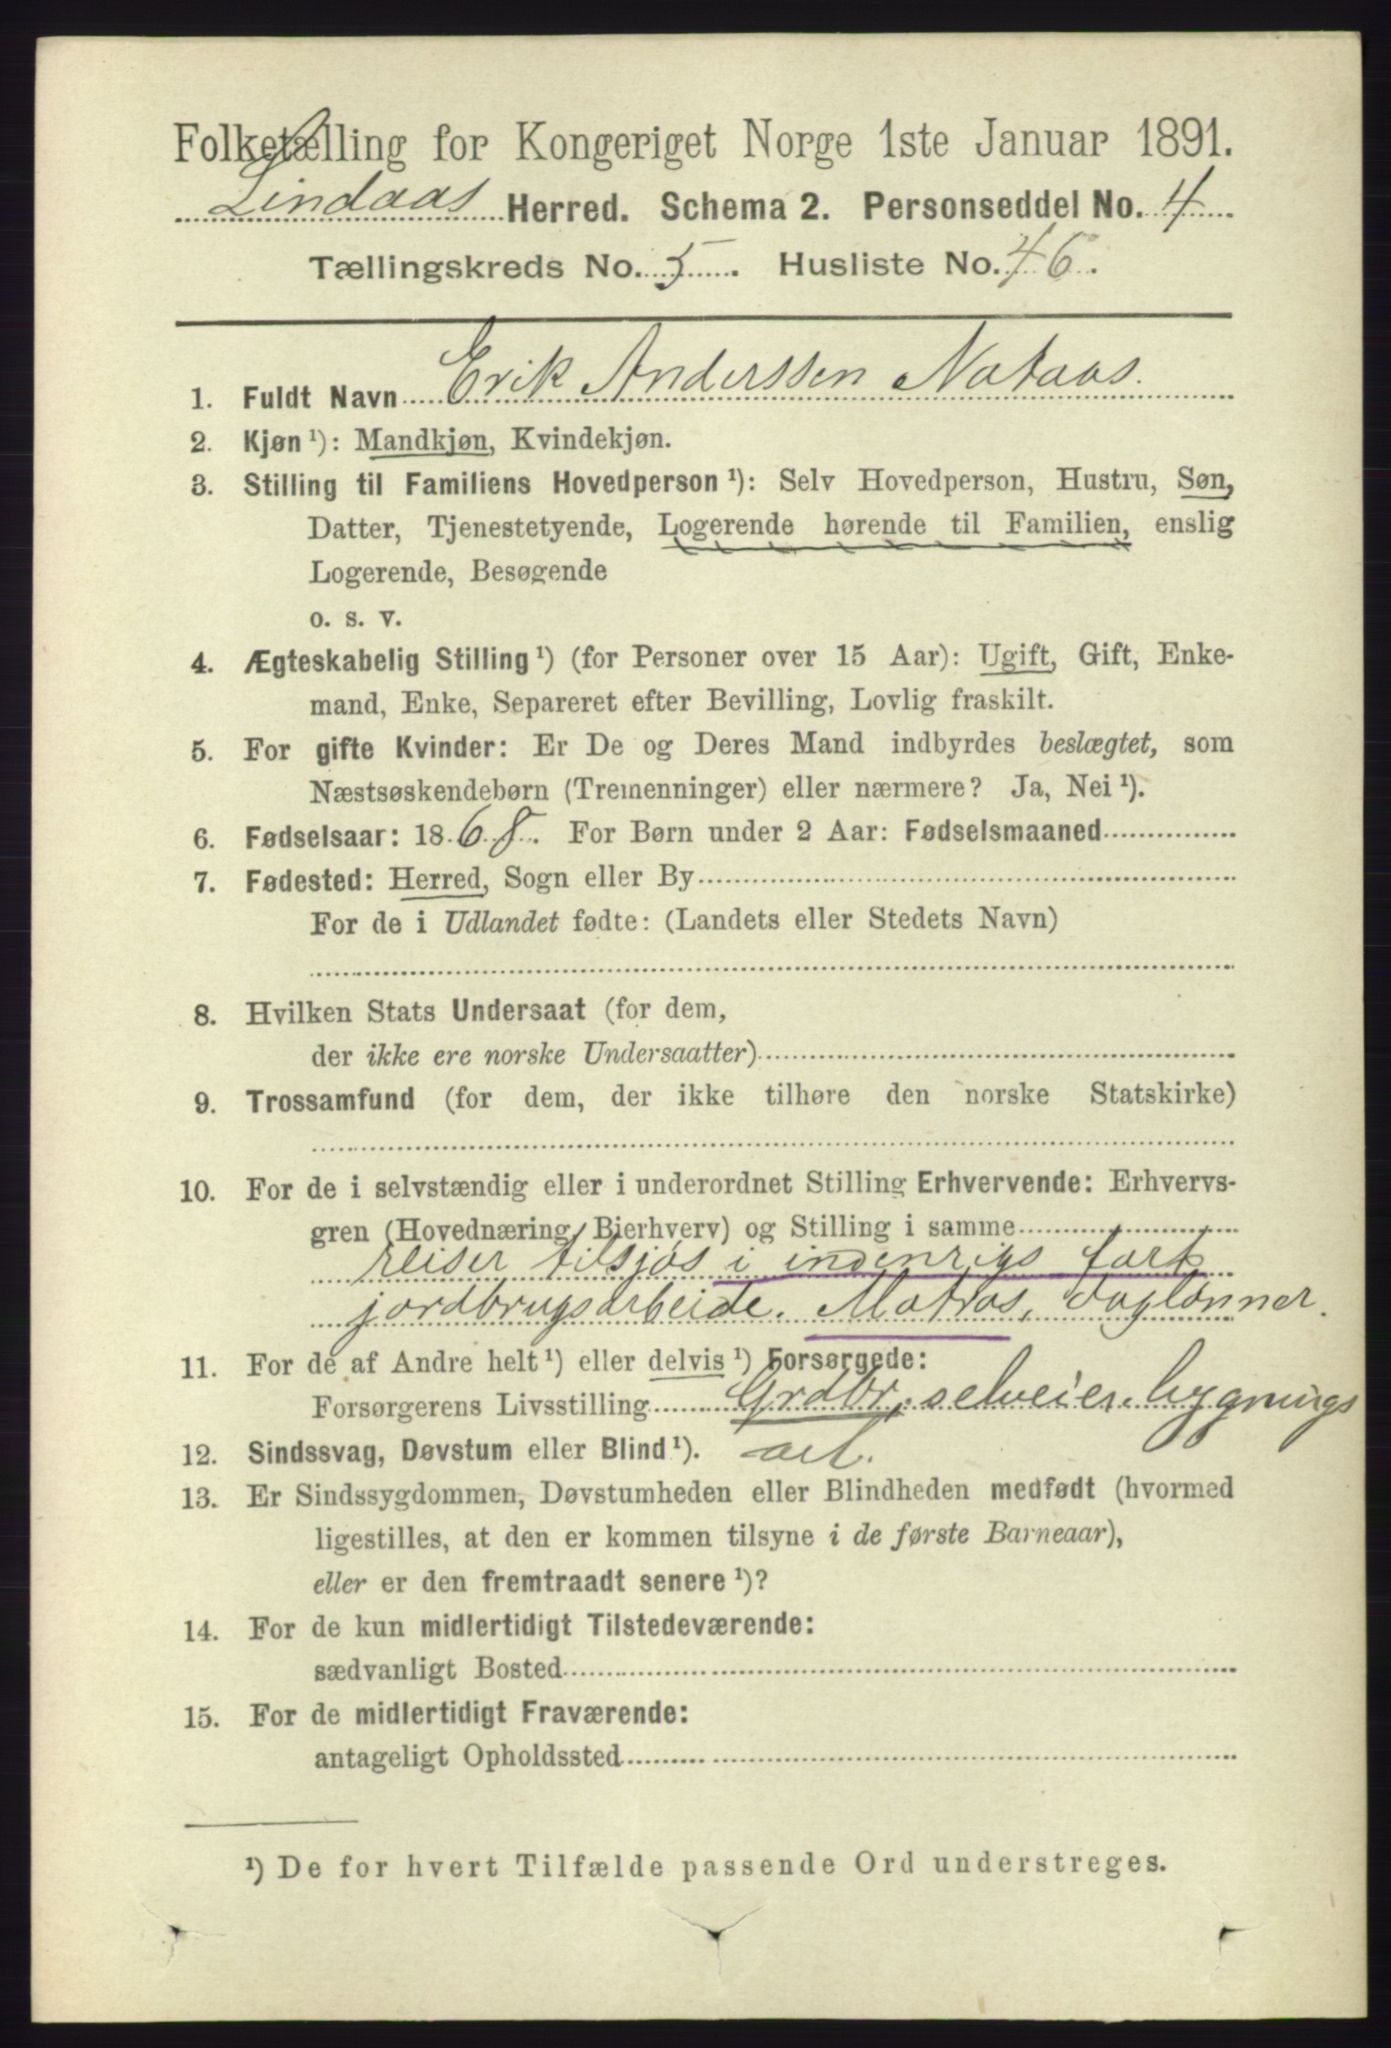 Folketælling for Kongeriget Norge 1ste Januar 1891.
Lindaas Herred. Schema 2. Personseddel No. 4
Tællingskreds No. 5. Husliste No. 46.
1. Fuldt Navn Erik Anderssen Nataas.
2. Kjøn ¹): Mandkjøn, Kvindekjøn.
3. Stilling til Familiens Hovedperson ¹): Selv Hovedperson, Hustru, Søn,
Datter, Tjenestetyende, Logerende hørende til Familien, enslig
Logerende, Besøgende
o. s. v.
4. Ægteskabelig Stilling ¹) (for Personer over 15 Aar): Ugift, Gift, Enke-
mand, Enke, Separeret efter Bevilling, Lovlig fraskilt.
5. For gifte Kvinder: Er De og Deres Mand indbyrdes beslægtet, som
Næstsøskendebørn (Tremenninger) eller nærmere? Ja, Nei ¹).
6. Fødselsaar: 1868. For Børn under 2 Aar: Fødselsmaaned
7. Fødested: Herred, Sogn eller By
For de i Udlandet fødte: (Landets eller Stedets Navn)
8. Hvilken Stats Undersaat (for dem,
der ikke ere norske Undersaatter)
9. Trossamfund (for dem, der ikke tilhøre den norske Statskirke)
10. For de i selvstændig eller i underordnet Stilling Erhvervende: Erhvervs-
gren (Hovednæring, Bierhverv) og Stilling i samme
reiser tilsjøs i indenrigs fart
jordbrugsarbeide. Matros, daglønner.
11. For de af Andre helt ¹) eller delvis ¹) Forsørgede:
Forsørgerens Livsstilling Grdbr, selveier. bygnings
12. Sindssvag, Døvstum eller Blind ¹). arb.
13. Er Sindssygdommen, Døvstumheden eller Blindheden medfødt (hvormed
ligestilles, at den er kommen tilsyne i de første Barneaar),
eller er den fremtraadt senere ¹)?
14. For de kun midlertidigt Tilstedeværende:
sædvanligt Bosted
15. For de midlertidigt Fraværende:
antageligt Opholdssted
¹) De for hvert Tilfælde passende Ord understreges.